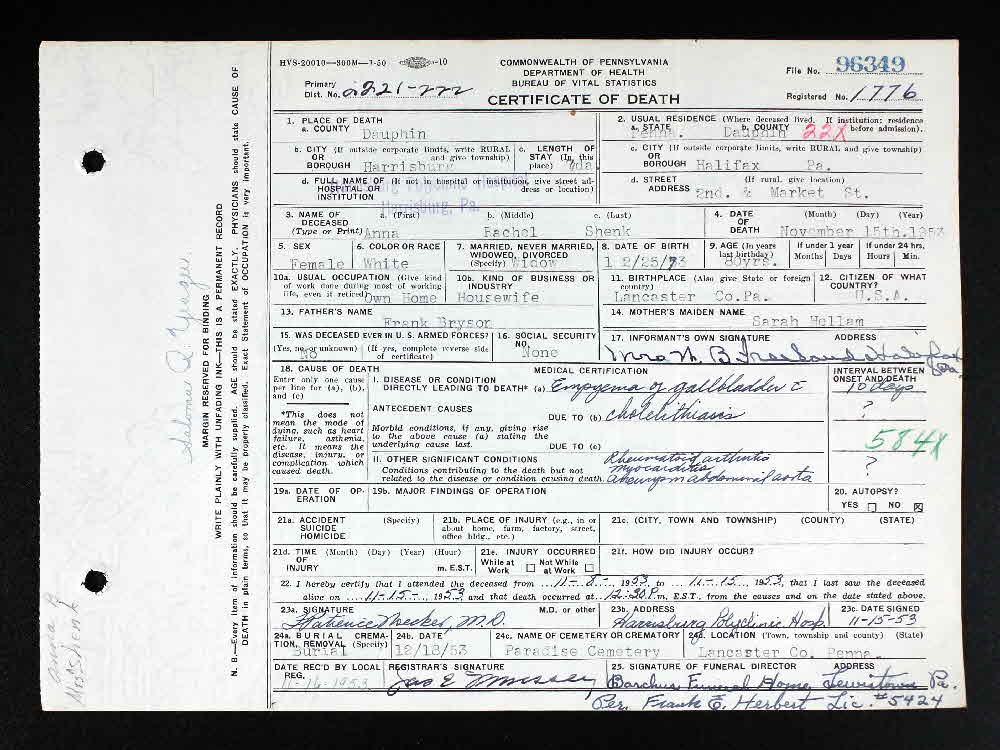 HVS-20010—300M—1-50 -10
COMMONWEALTH OF PENNSYLVANIA
DEPARTMENT OF HEALTH
BUREAU OF VITAL STATISTICS
CERTIFICATE OF DEATH
File No. 96349
Primary
Dist. No. 221-222
Registered No. 1776
1. PLACE OF DEATH
a. COUNTY
Dauphin
2. USUAL RESIDENCE (Where deceased lived. If institution: residence
a. STATE b. COUNTY before admission).
Penna. Dauphin 22X
b. CITY (If outside corporate limits, write RURAL
OR and give township)
BOROUGH Harrisburg
c. LENGTH OF
STAY (In this
place)
c. CITY (If outside corporate limits, write RURAL and give township)
OR
BOROUGH Halifax Pa.
d. FULL NAME OF (If not in hospital or institution, give street ad-
HOSPITAL OR dress or location)
INSTITUTION
Harrisburg, Pa.
d. STREET (If rural, give location)
ADDRESS
2nd. & Market St.
3. NAME OF a. (First) b. (Middle) c. (Last)
DECEASED
(Type or Print) Anna Rachel Shenk
4. DATE (Month) (Day) (Year)
OF
DEATH November 15th.1953
5. SEX
Female
6. COLOR OR RACE
White
7. MARRIED, NEVER MARRIED,
WIDOWED, DIVORCED
(Specify) Widow
8. DATE OF BIRTH
12/25/73
9. AGE (In years
last birthday)
80yrs.
If under 1 year
Months Days
If under 24 hrs.
Hours Min.
10a. USUAL OCCUPATION (Give kind
of work done during most of working
life, even if retired) Own Home
10b. KIND OF BUSINESS OR
INDUSTRY
Housewife
11. BIRTHPLACE (Also give State or foreign
country)
Lancaster Co.Pa.
12. CITIZEN OF WHAT
COUNTRY?
U.S.A.
13. FATHER'S NAME
Frank Bryson
14. MOTHER'S MAIDEN NAME
Sarah Hellam
15. WAS DECEASED EVER IN U. S. ARMED FORCES?
(Yes, no, or unknown) (If yes, complete reverse side
of certificate)
No
16. SOCIAL SECURITY
NO.
None
17. INFORMANT'S OWN SIGNATURE ADDRESS
Halifax Pa.
18. CAUSE OF DEATH
Enter only one cause
per line for (a), (b),
and (c)
MEDICAL CERTIFICATION
INTERVAL BETWEEN
ONSET AND DEATH
I. DISEASE OR CONDITION
DIRECTLY LEADING TO DEATH* (a) Empyema of gallbladder c̄
10 days
*This does not
mean the mode of
dying, such as heart
failure, asthenia,
etc. It means the
disease, injury, or
complication which
caused death.
ANTECEDENT CAUSES
DUE TO (b) cholelithiasis
?
Morbid conditions, if any, giving rise
to the above cause (a) stating the
underlying cause last.
DUE TO (c)
584X
II. OTHER SIGNIFICANT CONDITIONS
Conditions contributing to the death but not
related to the disease or condition causing death.
Rheumatoid arthritis
myocarditis
aneurysm abdominal aorta
?
19a. DATE OF OP-
ERATION
19b. MAJOR FINDINGS OF OPERATION
20. AUTOPSY?
YES NO X
21a. ACCIDENT (Specify)
SUICIDE
HOMICIDE
21b. PLACE OF INJURY (e.g., in or
about home, farm, factory, street,
office bldg., etc.)
21c. (CITY, TOWN AND TOWNSHIP) (COUNTY) (STATE)
21d. TIME (Month) (Day) (Year) (Hour)
OF
INJURY m. E.S.T.
21e. INJURY OCCURRED
While at Not While
Work at Work
21f. HOW DID INJURY OCCUR?
22. I hereby certify that I attended the deceased from 11-8-, 1953, to 11-15, 1953, that I last saw the deceased
alive on 11-15-, 1953 and that death occurred at 12:30 P.m, E.S.T., from the causes and on the date stated above.
23a. SIGNATURE M.D. or other
M.D.
23b. ADDRESS
Harrisburg Polyclinic Hosp.
23c. DATE SIGNED
11-15-53
24a. BURIAL CREMA-
TION, REMOVAL (Specify)
Burial
24b. DATE
12/18/53
24c. NAME OF CEMETERY OR CREMATORY
Paradise Cemetery
24d. LOCATION (Town, township and county) (State)
Lancaster Co. Penna.
DATE REC'D BY LOCAL
REG.
11-16-1953
REGISTRAR'S SIGNATURE
25. SIGNATURE OF FUNERAL DIRECTOR ADDRESS
Barchus Funeral Home, Lewistown Pa.
Per. Frank E. Herbert Lic. #5424
N. B.—Every item of information should be carefully supplied. AGE should be stated EXACTLY. PHYSICIANS should state CAUSE OF
DEATH in plain terms, so that it may be properly classified. Exact Statement of OCCUPATION is very important.
WRITE PLAINLY WITH UNFADING INK—THIS IS A PERMANENT RECORD
MARGIN RESERVED FOR BINDING